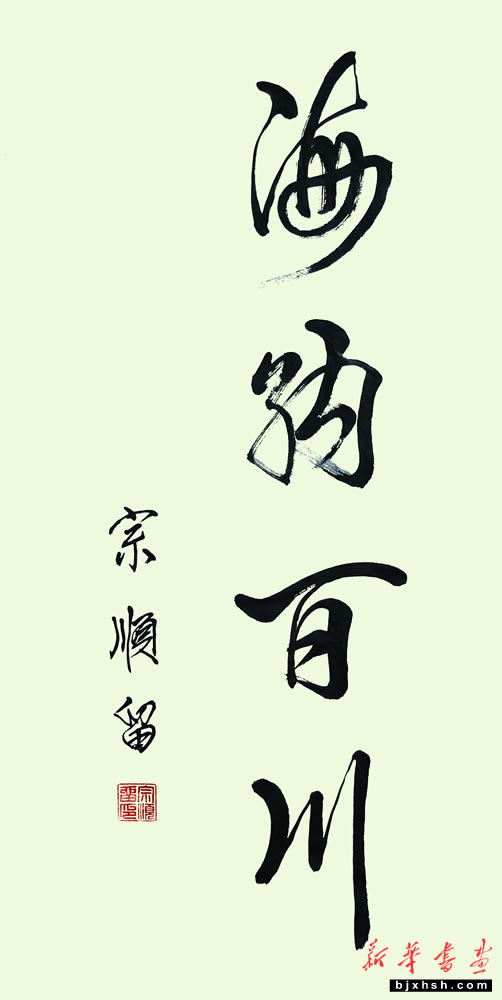 海納百川
宗順留
宗順留印
新华书画
bjxhsh.com